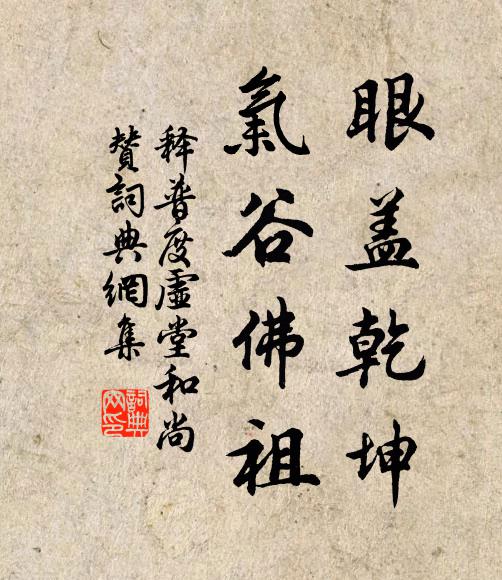 眼盖乾坤
氣谷佛祖
释普度虛堂和尚
賛詞典網集
詞典网印